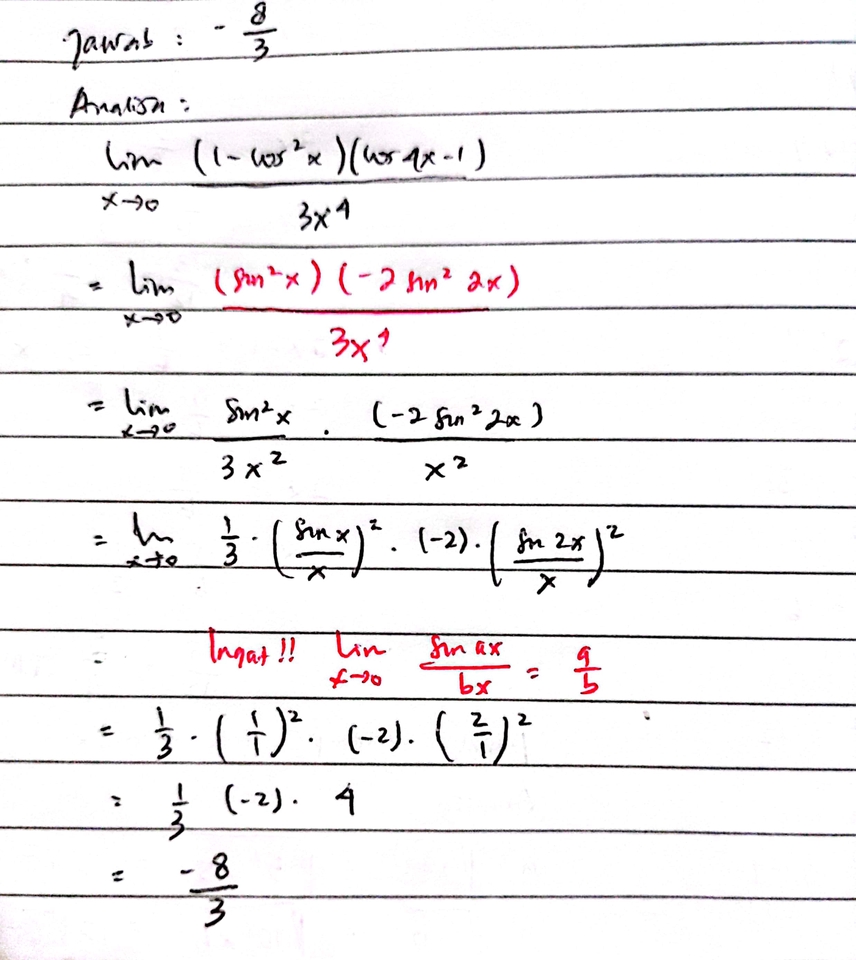 Jawab : - 8/3
Analisa :
lim x→0 (1-cos²x)(cos 4x-1) / 3x⁴
= lim x→0 (sin²x)(-2 sin² 2x) / 3x⁴
= lim x→0 sin²x / 3x² . (-2 sin² 2x) / x²
= lim x→0 1/3 . (sin x / x)² . (-2) . (sin 2x / x)²
Ingat !! lim x→0 sin ax / bx = a/b
= 1/3 . (1/1)² . (-2) . (2/1)²
= 1/3 (-2) . 4
= -8/3